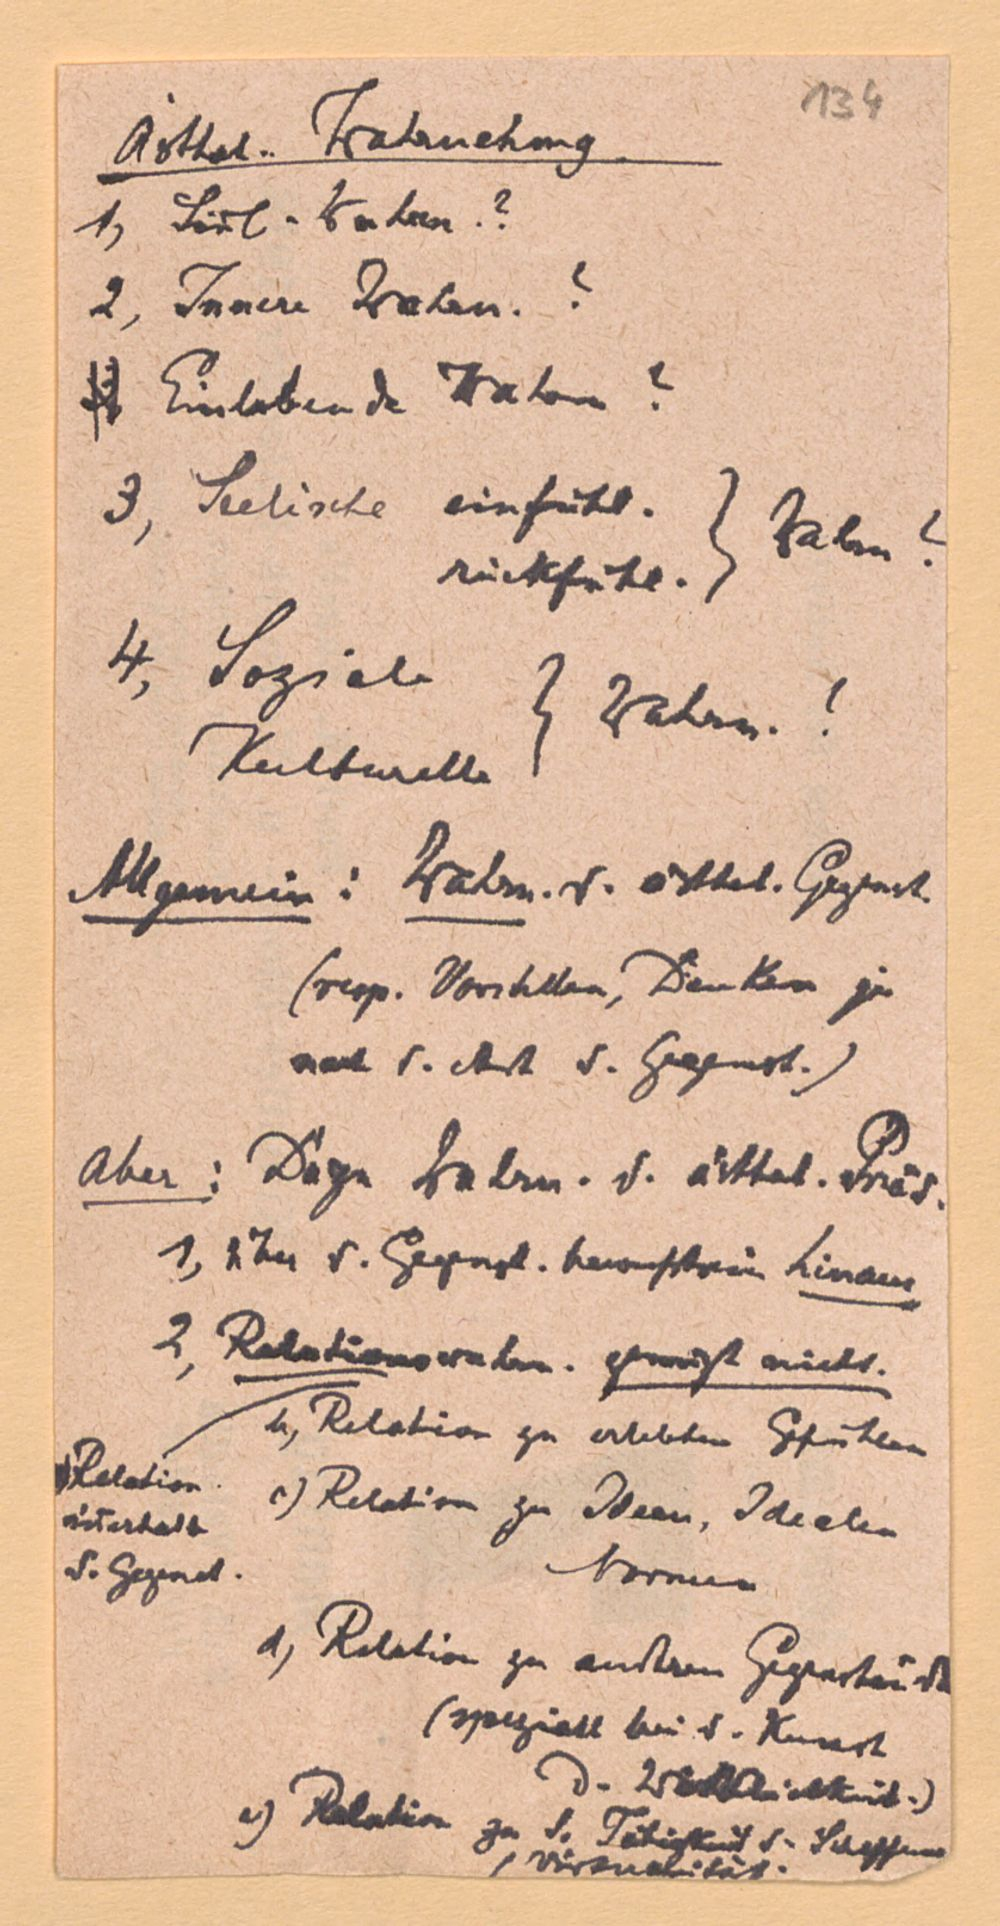 134
Ästhet. Wahrnehmung
1, Sinl-Wahrn.?
2, Innere Wahrn. ?
Einlebende Wahrn ?
3, Seelische einfühl. } Wahrn ?
rückfühl.
4, Soziale } Wahrn. !
Kulturelle
Allgemein: Wahrn. d. ästhet. Gegenst.
(resp. Vorstellen, Denken je
nach d. Art d. Gegenst.)
Aber: Dazu Wahrn. d. ästhet. Präd.
1, über d. Gegenst. bewußtsein hinaus
2, Relationswahrn. genügt nicht.
b, Relation zu erlebten Gefühlen
a) Relation
innerhalb
d. Gegenst.
c) Relation zu Ideen, Idealen
Normen
d, Relation zu anderen Gegenständ
(speziell bei d. Kunst
d. Wirklichkeit.)
e) Relation zu d. Tätigkeit d. Schaffens
, Virtualität.